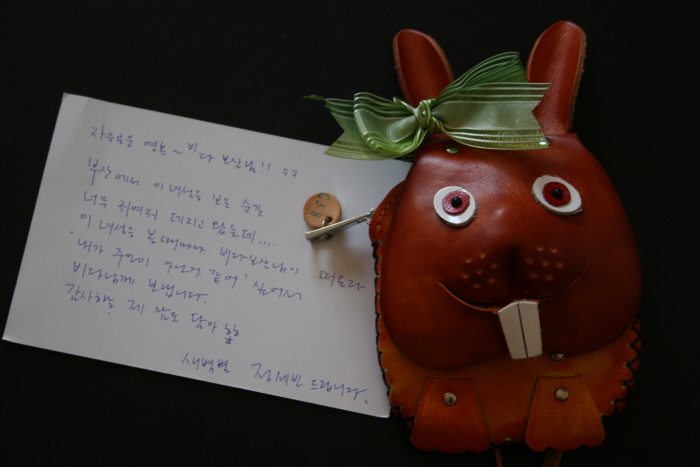 자유로운 영혼~ 비다 보살님!! ㅋㅋ
부산에서 이 녀석을 보는 순간
너무 귀여워 데리고 왔는데....
이 녀석을 볼 때마다 비다보살님이 떠올라
'내가 주인이 아닌거 같어' 싶어서
비다님께 보냅니다.
감사하는 제 맘도 담아
새벽별 정세빈 드립니다.